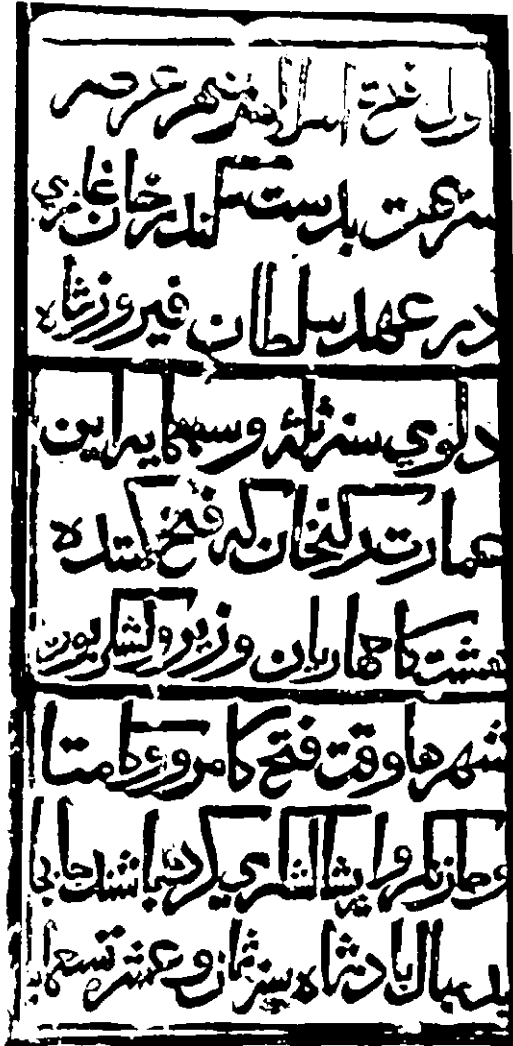 اول فتح اسلام شهر عرصه
سريهت بدست سكندر خان غازي
در عهد سلطان فيروز شاه
دلوي سنه ثلثة وسبعمايه اين
عمارت ركنخان كه فتح كننده
هشت كامهاريان وزير ولشكر بوده
شهرها وقت فتح كامرو وكامتا
وجازنكر واريشا لشكري كرده باشند جابجا
بدنبال بادشاه سنه ثمان وعشر تسعمايه